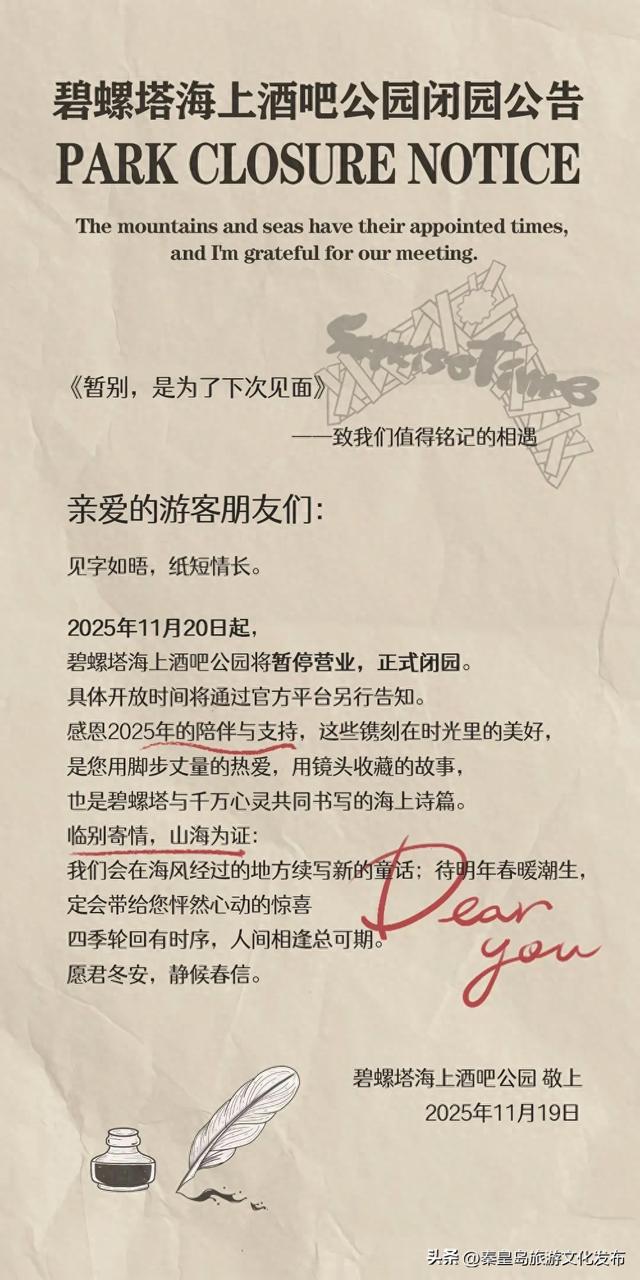 碧螺塔海上酒吧公园闭园公告
PARK CLOSURE NOTICE
The mountains and seas have their appointed times,
and I'm grateful for our meeting.
SunriseTime
《暂别，是为了下次见面》
——致我们值得铭记的相遇
亲爱的游客朋友们：
见字如晤，纸短情长。
2025年11月20日起，
碧螺塔海上酒吧公园将暂停营业，正式闭园。
具体开放时间将通过官方平台另行告知。
感恩2025年的陪伴与支持，这些镌刻在时光里的美好，
是您用脚步丈量的热爱，用镜头收藏的故事，
也是碧螺塔与千万心灵共同书写的海上诗篇。
临别寄情，山海为证：
我们会在海风经过的地方续写新的童话；待明年春暖潮生，
定会带给您怦然心动的惊喜
四季轮回有时序，人间相逢总可期。
愿君冬安，静候春信。
Dear
you
碧螺塔海上酒吧公园 敬上
2025年11月19日
头条 @秦皇岛旅游文化发布